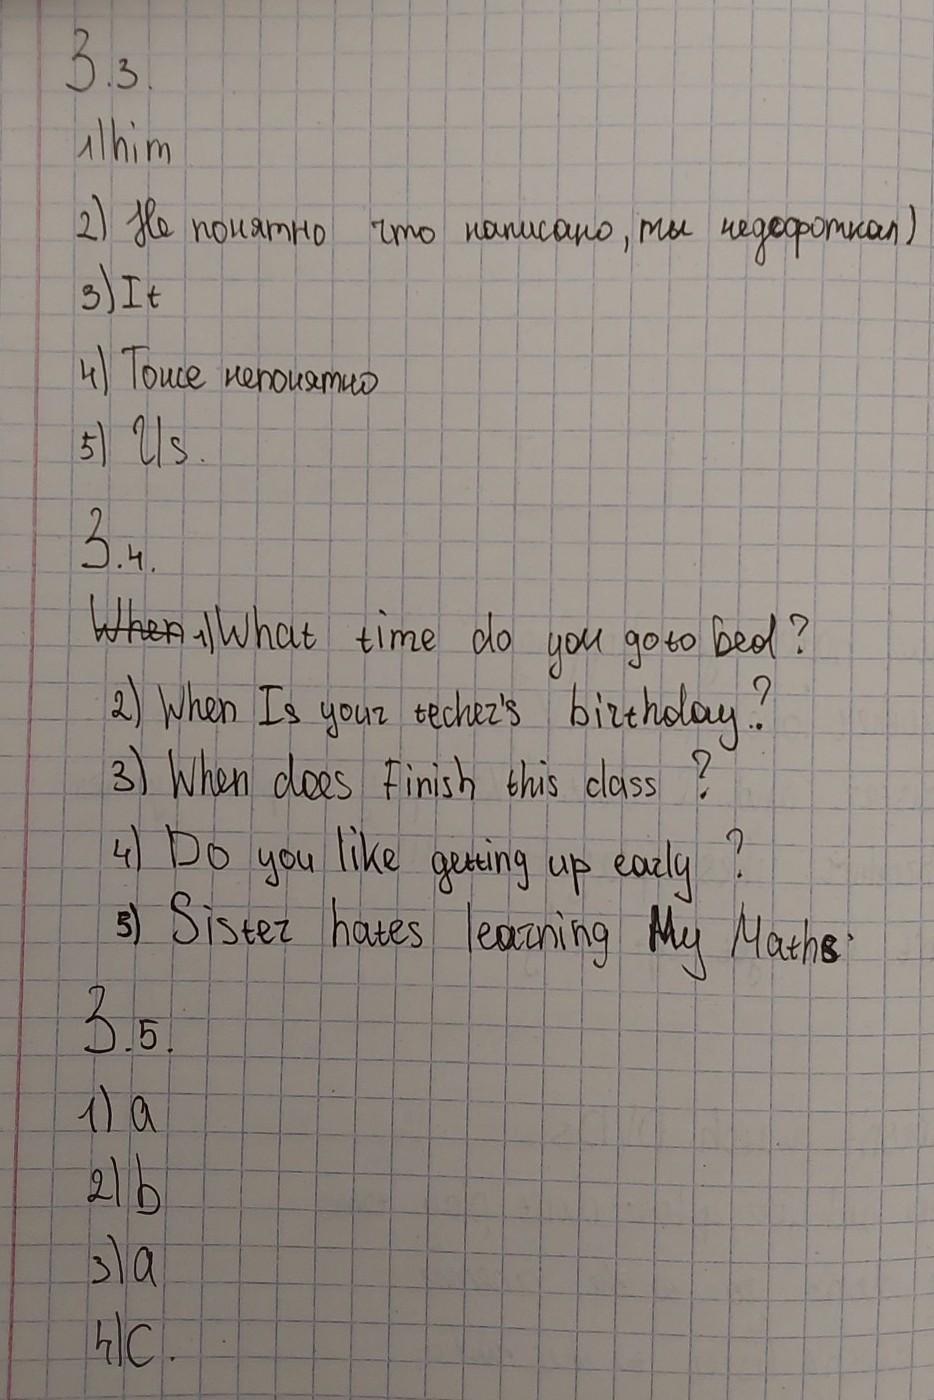 3.3.
1) him
2) Не понятно что написано, ты недофоткал)
3) It
4) Тоже непонятно
5) Us.
3.4.
When 1) What time do you go to bed?
2) When Is your techer's birthday?
3) When does finish this class ?
4) Do you like getting up early ?
5) Sister hates learning My Maths.
3.5.
1) a
2) b
3) a
4) c.